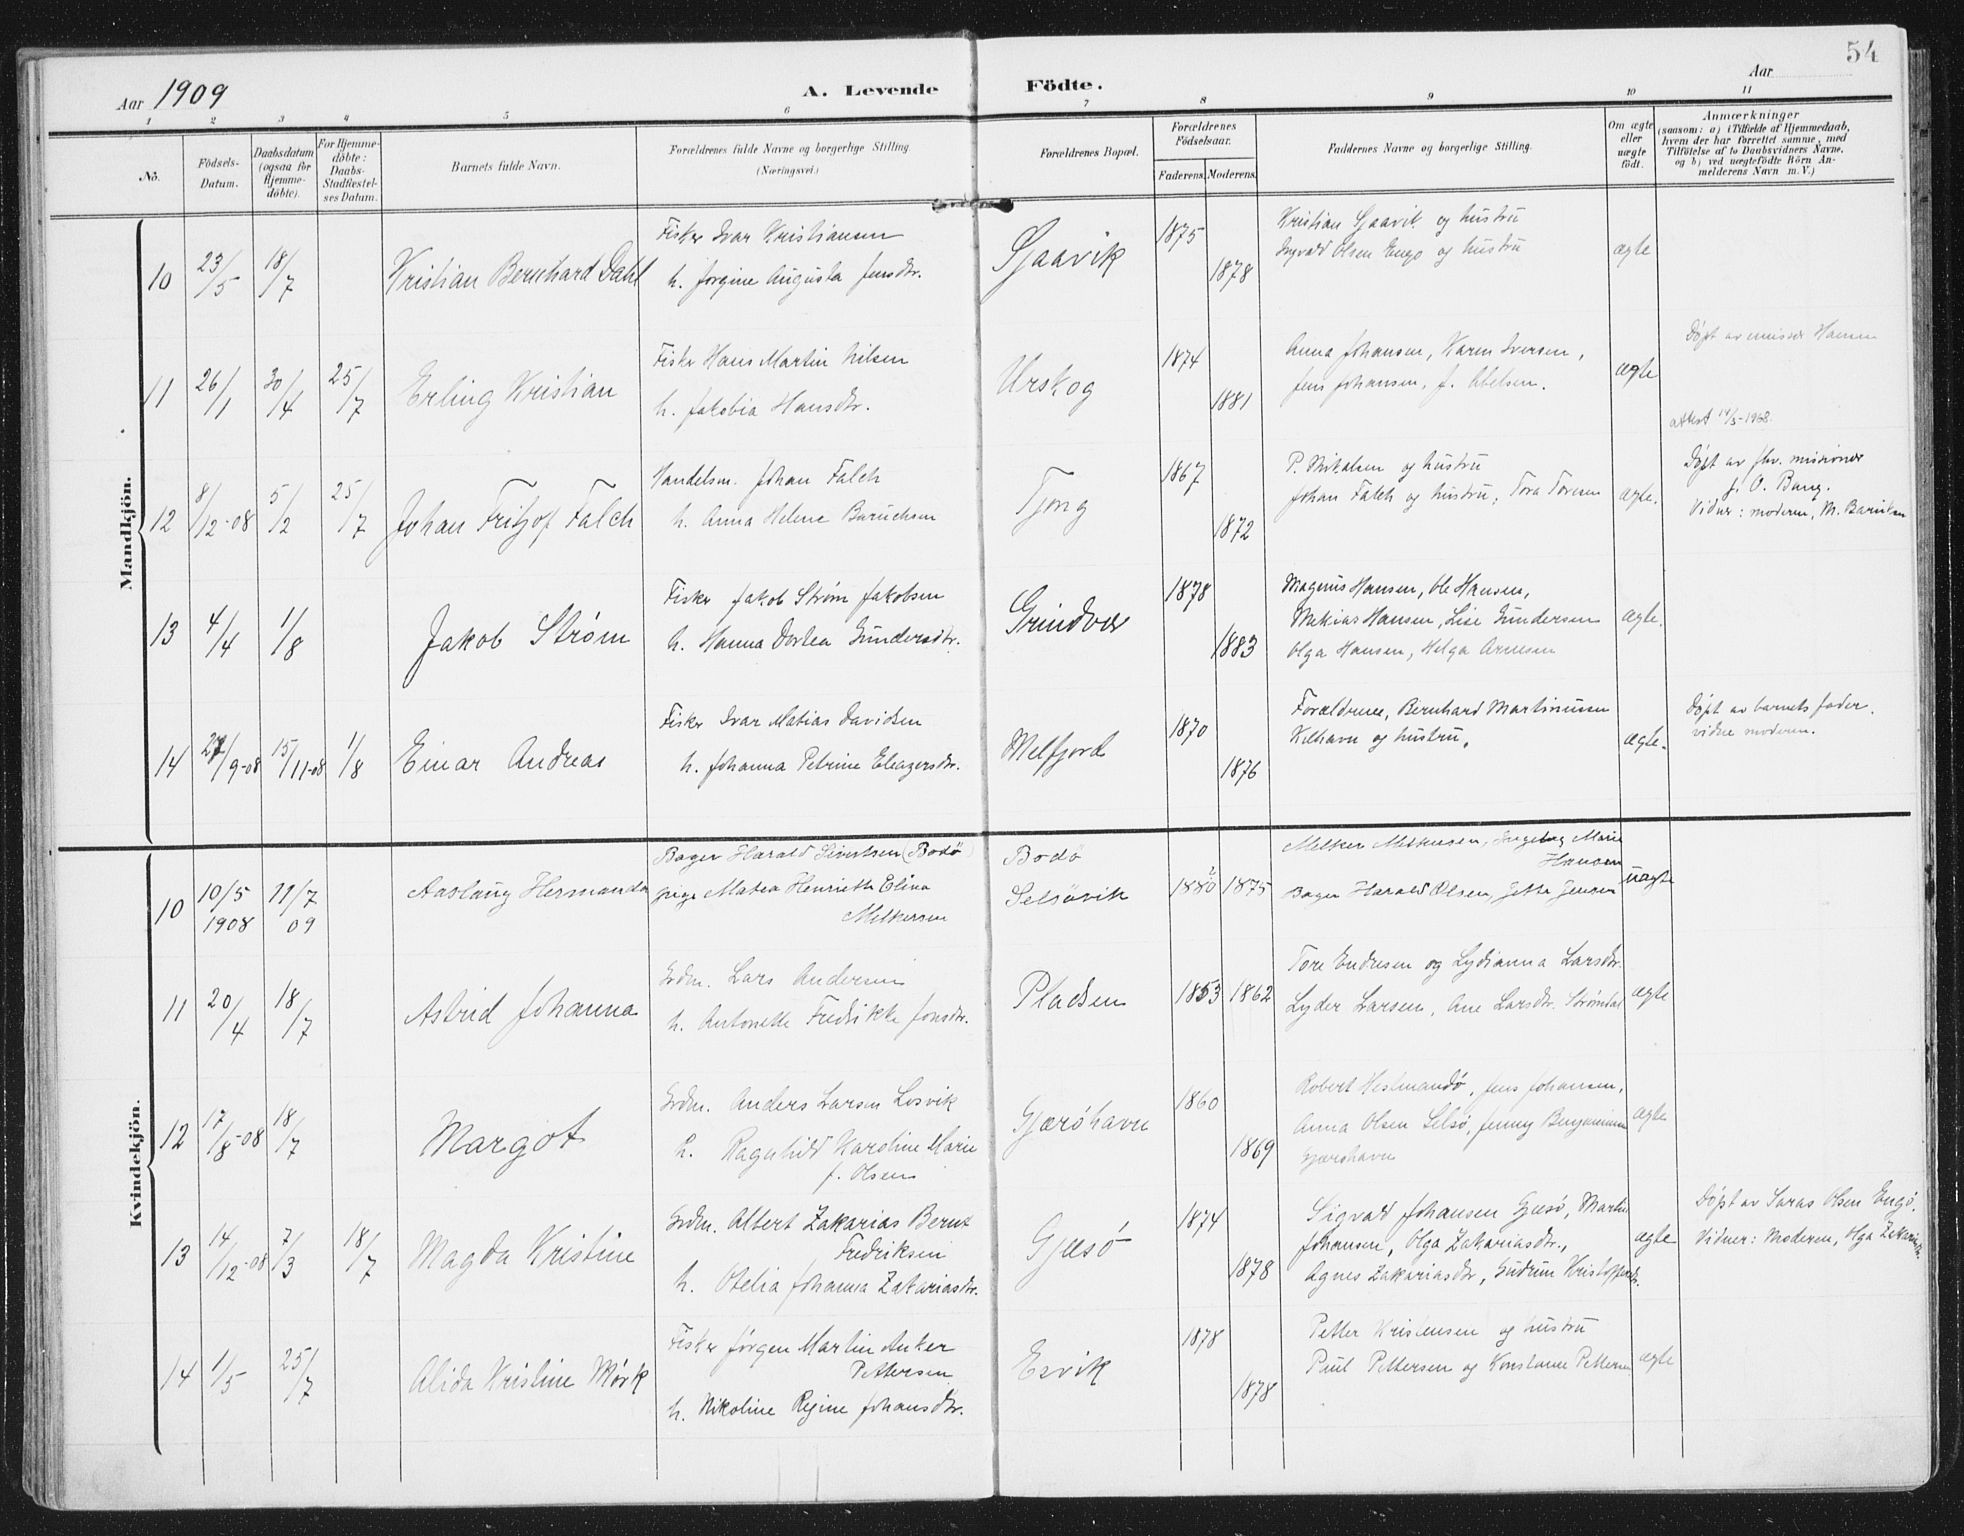 54
Aar 1909
A. Levende Födte.
Aar
1 2 3 4 5 6 7 8 9 10 11
No.
Födsels-Datum.
Daabsdatum (ogsaa for Hjemme-döbte).
For Hjemme-döbte: Daabs-Stadfæstel-ses Datum.
Barnets fulde Navn.
Forældrenes fulde Navne og borgerlige Stilling
(Næringsvei.)
Forældrenes Bopæl.
Forældrenes Födselsaar.
Faderens. Moderens.
Faddernes Navne og borgerlige Stilling.
Om ægte eller uægte födt.
Anmærkninger
(saasom: a) i Tilfælde af Hjemmedaab,
hvem der har forrettet samme, med
Tilföielse af to Daabsvidners Navne,
og b) ved uægtefödte Börn An-
melderens Navn m. V.)
Mandkjön.
10 23/5 18/7 Kristian Bernhard Dahl
Fisker Ivar Kristiansen
h. Jørgine Augusta Jensdtr.
Sjaavik 1875 1878
Kristian Sjaavik og hustru
Ingvald Olsen Engø og hustru
ægte
11 26/1 30/4 25/7 Erling Kristian
Fisker Hans Martin Nilsen
h. Jakobia Hansdtr.
Urskog 1874 1881
Anna Johansen, Karen Iversen,
Jens Johansen, J. Abelsen.
ægte
Døpt av emissær Hansen
attest 14/5-1968.
12 8/12-08 5/2 25/7 Johan Fritjof Falch
Handelsm. Johan Falch
h. Anna Helene Baruchsen
Tjong 1867 1872
P. Nikalsen og hustru
Johan Falch og hustru, Tora Toresen
ægte.
Døpt av fhv. missionær
J. O. Bang.
Vidner: moderen, M. Baruksen
13 4/4 1/8 Jakob Strøm
Fisker Jakob Strøm Jakobsen
h. Hanna Dortea Gundersdtr.
Grindvær 1878 1883
Magnus Hansen, Ole Hansen,
Mekias Hansen, Lise Gundersen
Olga Hansen, Helga Arnesen
ægte.
14 27/9-08 15/11-08 1/8 Einar Andreas
Fisker Ivar Matias Davidsen
h. Johanna Petrine Eleazersdtr.
Melfjord 1870 1876
Forældrene, Bernhard Martinussen
Kilhavn og hustru,
ægte.
Døpt av barnets fader.
vidne moderen.
Kvindekjön.
10 10/5 1908 11/7 09 Aaslaug Hermanda
Bager Harald Sivertsen (Bodø)
pige Matea Henriette Elina
Melkersen
Bodø
Selsøvik 1880 1875
Melker Melkersen, Ingeborg Marie
Hansen
Bager Harald Olsen, Jette Jensen
uægte
11 20/4 18/7 Astrid Johanna
Grdm. Lars Andersen
h. Antonette Fredrikke Jonsdtr.
Pladsen 1853 1862
Tore Endresen og Lydianna Larsdtr.
Lyder Larsen, Ane Larsdtr. Strømdal
ægte
12 17/8-08 18/7 Margot
Grdm. Anders Larsen Losvik
h. Ragnhild Karoline Marie
f. Olsen
Gjærøhavn 1860 1869
Robert Hestmandø, Jens Johansen,
Anna Olsen Selsø, Jenny Benjaminsen
Gjærøhavn
ægte
13 14/12-08 7/3 18/7 Magda Kristine
Grdm. Albert Zakarias Bernt
Fredriksen
h. Otelia Johanna Zakariasdtr.
Gjesø 1874 1878
Sigvald Johansen Gjesø, Martin
Johansen, Olga Zakariasdtr.,
Agnes Zakariasdtr, Gudrun Kristoffersdtr.
ægte
Døpt av Saras Olsen Engø.
Vidner: Moderen, Olga Zakariasdtr.
14 1/5 25/7 Alida Kristine Mørk
Fisker Jørgen Martin Anker
Pettersen
h. Nikoline Regine Johansdtr.
Esvik 1878 1878
Petter Kristensen og hustru
Paul Pettersen og Konstanse Pettersen
ægte